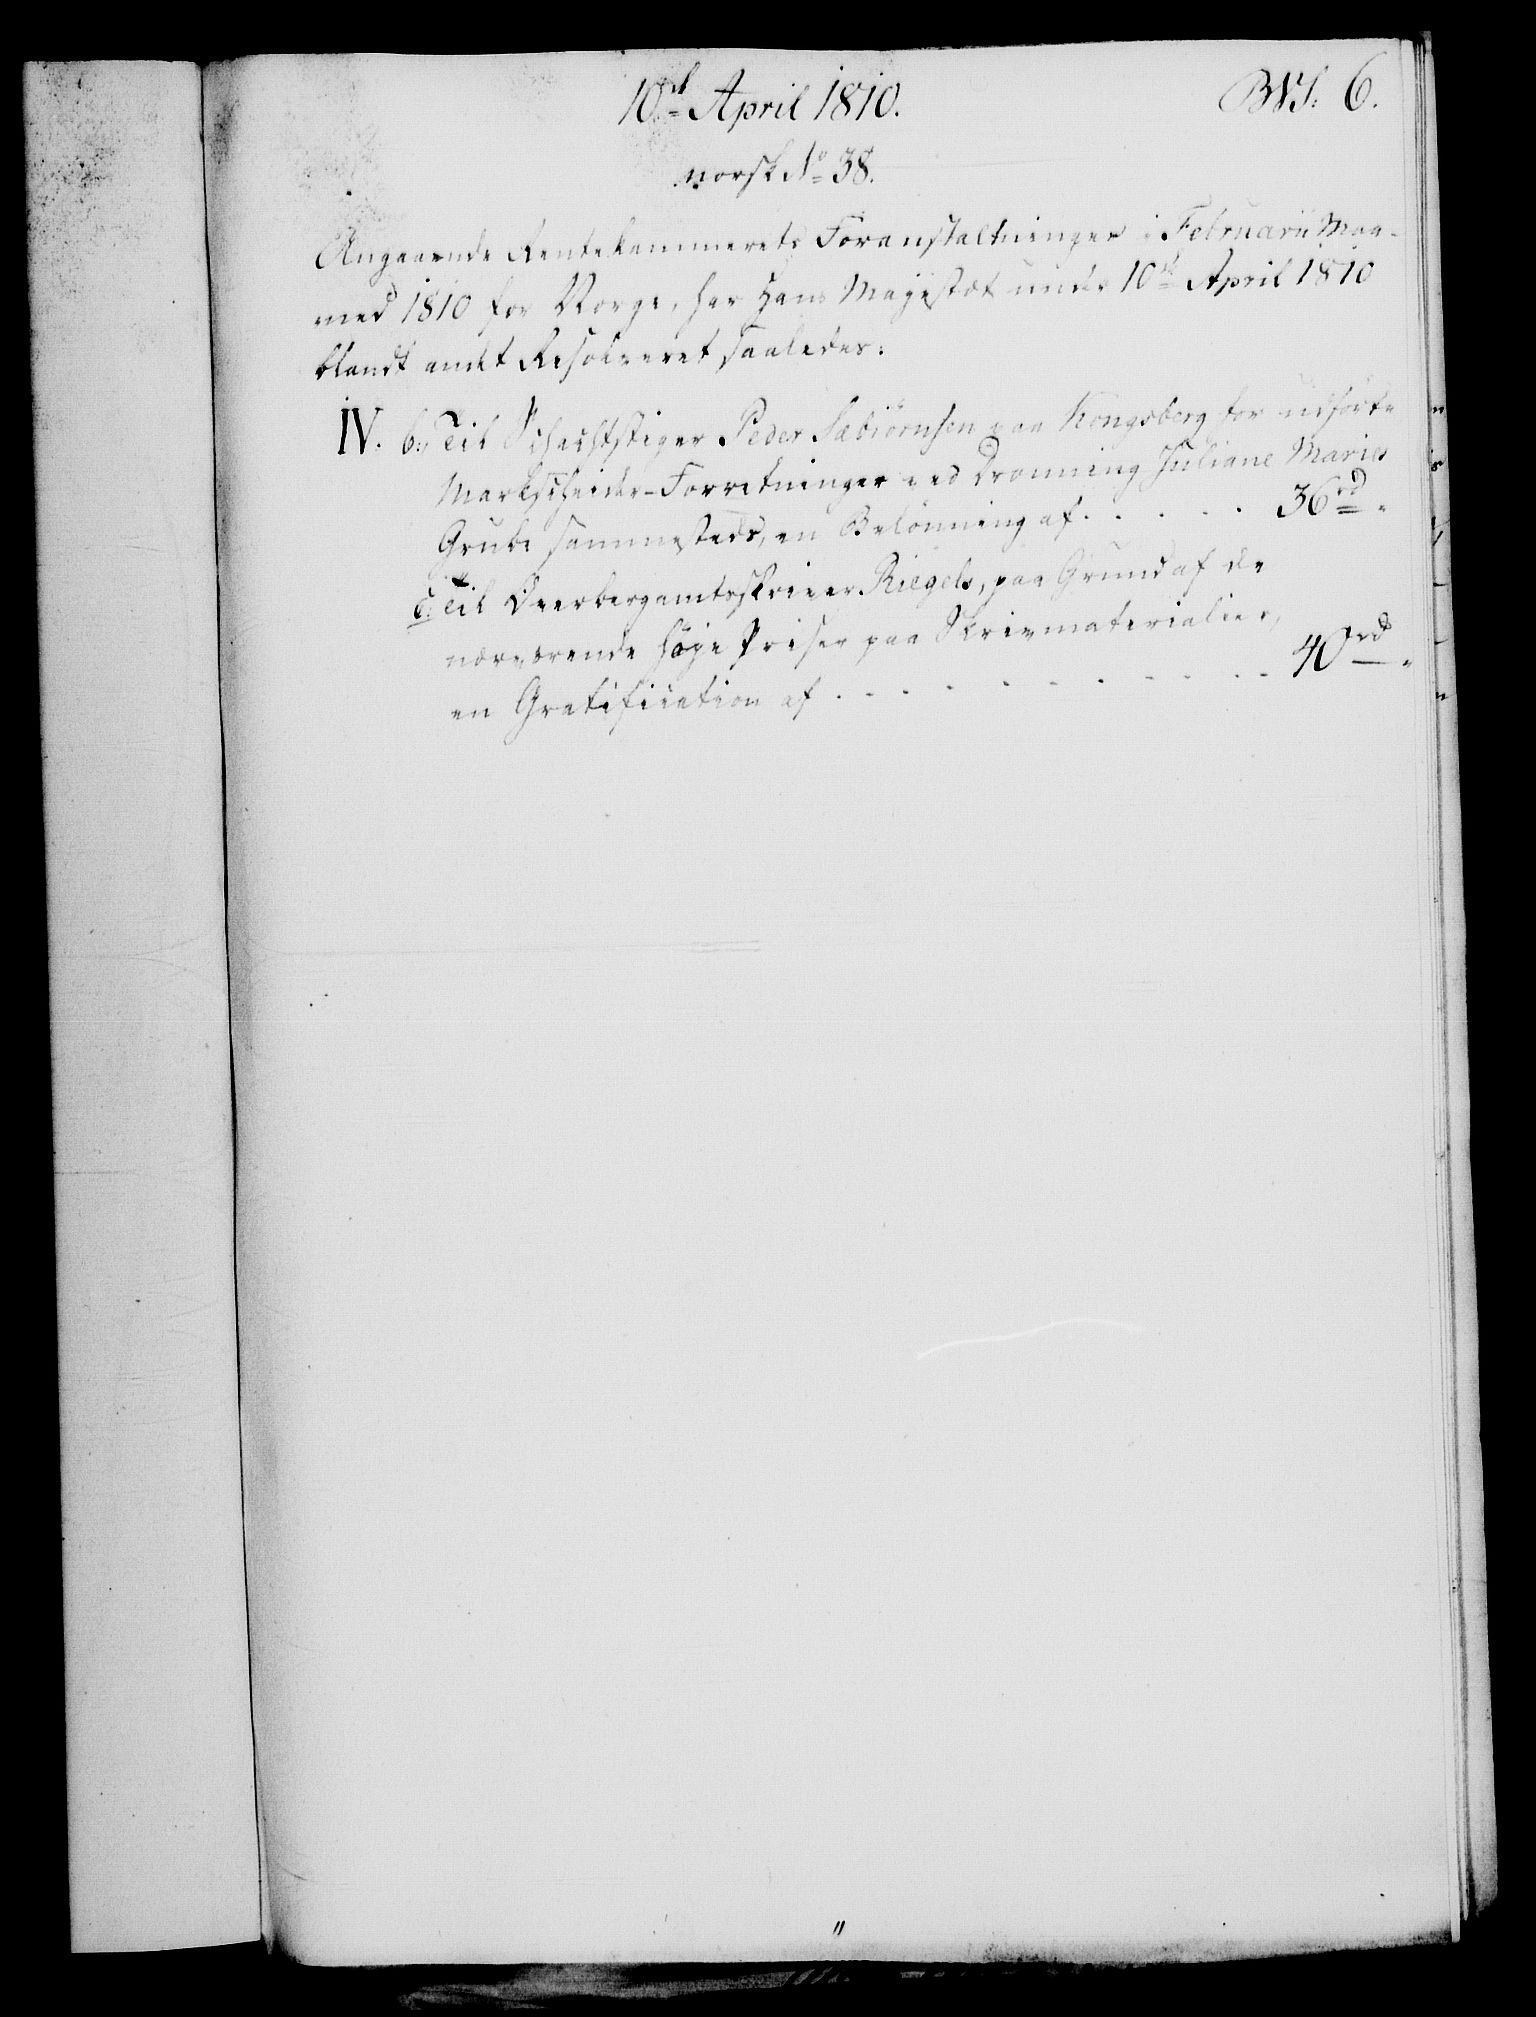 10de April 1810.
6.
norsk No 38.
Angaaende Rentekammerets Foranstaltninger i Februarii Maa-
ned 1810 for Norge, har Hans Majestæt under 10de April 1810
blandt andet Resolveret saaledes:
IV. b., Til Schachtstiger Peder Sæbiörnsen paa Kongsberg for udförte
Markscheider-Forretninger ved Dronning Juliane Maries
Grube sammesteds, en Belönning af . . . . . 36rd "
c. Til Overbergamtsskriver Riegels, paa Grund af de
nærværende høje Priser paa Skrivmaterialier,
en Gratification af . . . . . . . . . . 40rd "